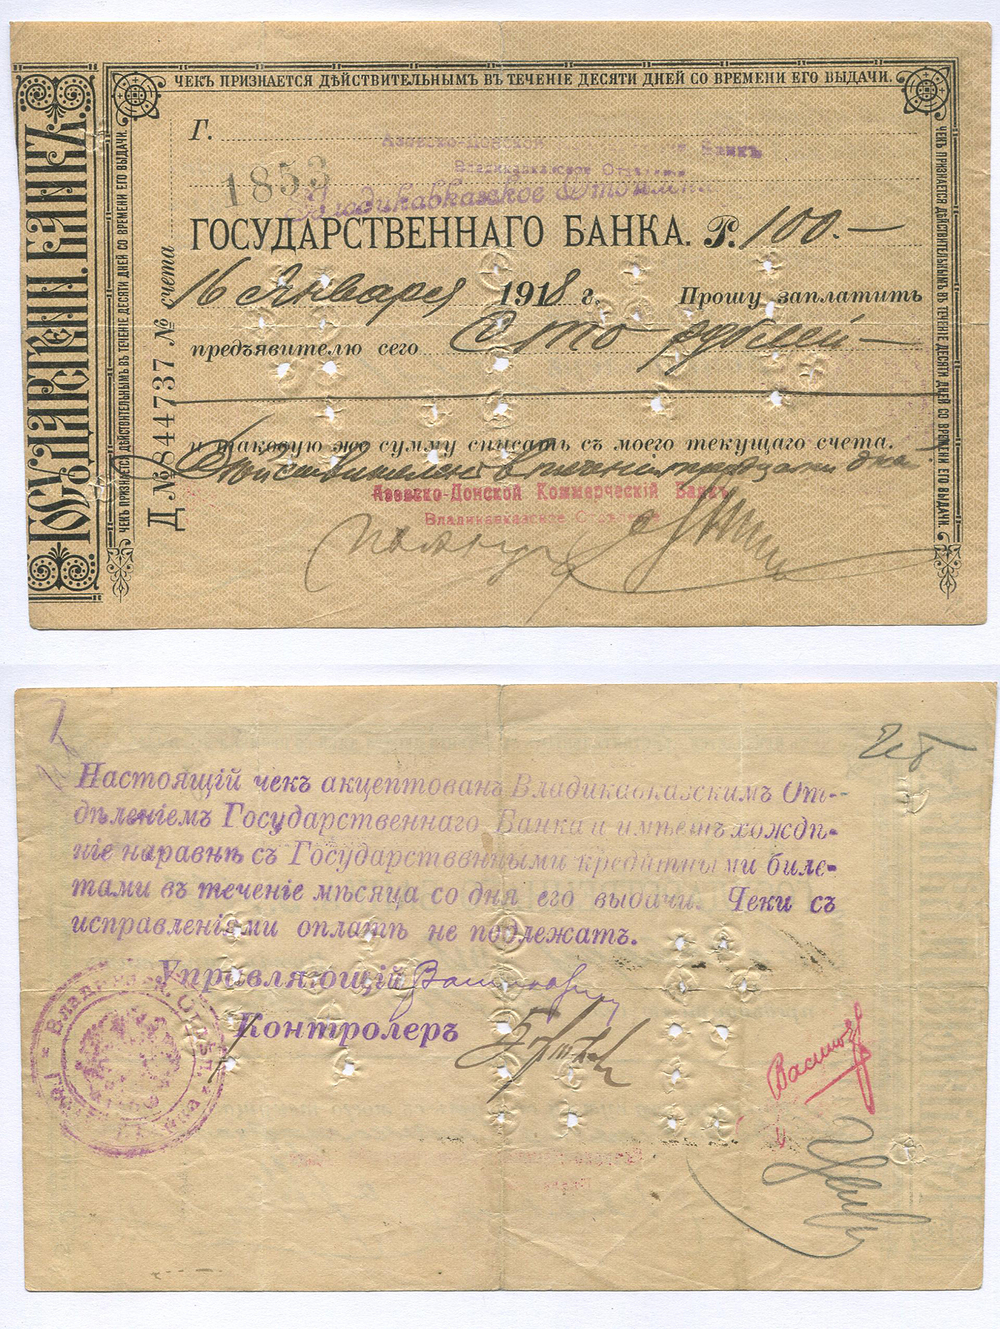 ЧЕКЪ ПРИЗНАЕТСЯ ДѢЙСТВИТЕЛЬНЫМЪ ВЪ ТЕЧЕНІЕ ДЕСЯТИ ДНЕЙ СО ВРЕМЕНИ ЕГО ВЫДАЧИ.
ГОСУДАРСТВЕН. БАНКЪ.
ЧЕКЪ ПРИЗНАЕТСЯ ДѢЙСТВИТЕЛЬНЫМЪ ВЪ ТЕЧЕНІЕ ДЕСЯТИ ДНЕЙ СО ВРЕМЕНИ ЕГО ВЫДАЧИ.
Д №844737 № счета
Г.
Азовско-Донской Банкъ
Владикавказское
1853
Владикавказское Отдѣлен
ГОСУДАРСТВЕННАГО БАНКА. Р. 100.—
16 Января 1918 г. Прошу заплатить
предъявителю сего Сто рублей—
и таковую же сумму списать съ моего текущаго счета.
Дѣйствителенъ в теченiи тридцати дней
Азовско-Донской Коммерческій Банкъ
Владикавказское Отдѣленіе
ЧЕКЪ ПРИЗНАЕТСЯ ДѢЙСТВИТЕЛЬНЫМЪ ВЪ ТЕЧЕНІЕ ДЕСЯТИ ДНЕЙ СО ВРЕМЕНИ ЕГО ВЫДАЧИ.
Настоящій чекъ акцептованъ Владикавказскимъ От-
дѣленіемъ Государственнаго Банка и имѣетъ хожде-
ніе наравнѣ съ Государственными кредитными биле-
тами въ теченіе мѣсяца со дня его выдачи. Чеки съ
исправленіями оплатѣ не подлежатъ.
Управляющій
Контролеръ